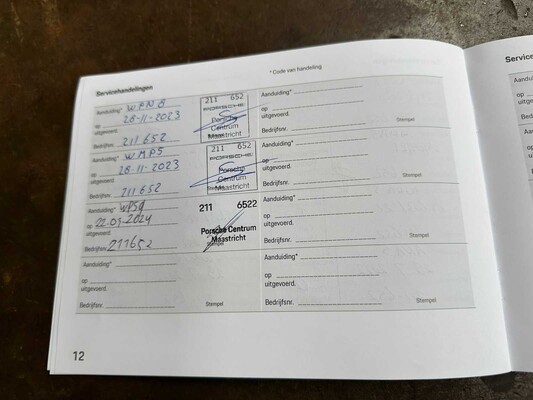 * Code van handeling
Servicehandelingen
Aanduiding* WRNB
op 28-11-2023
uitgevoerd.
Bedrijfsnr. 211652
211 652
PORSCHE
Porsche
Centrum
Maastricht
Aanduiding* WMPS
op 28-11-2023
uitgevoerd.
Bedrijfsnr. 211652
211 652
PORSCHE
Porsche
Centrum
Maastricht
Aanduiding*
op 22-03-2024
uitgevoerd.
Bedrijfsnr. 211652
211 6522
Porsche Centrum
Maastricht
Stempel
Aanduiding*
op
uitgevoerd.
Bedrijfsnr.
Stempel
Aanduiding*
op
uitgevoerd.
Bedrijfsnr.
Stempel
Aanduiding*
op
uitgevoerd.
Bedrijfsnr.
Stempel
Aanduiding*
op
uitgevoerd.
Bedrijfsnr.
Stempel
Aanduiding*
op
uitgevoerd.
Bedrijfsnr.
Stempel
12
Service
op
uitgevoerd